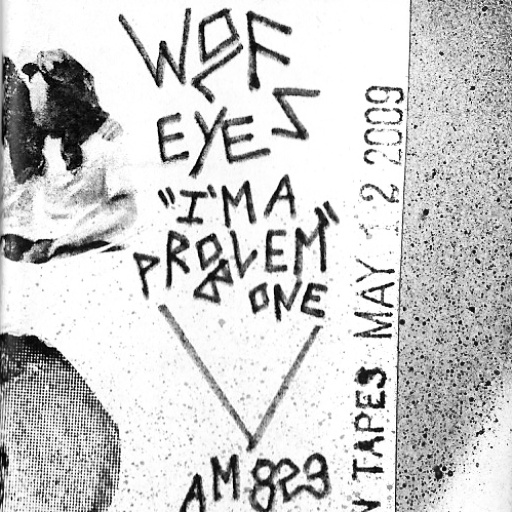 WOF
EYES
"I'M A
PROBLEM"
ONE
AM 823
TAPES MAY 12 2009